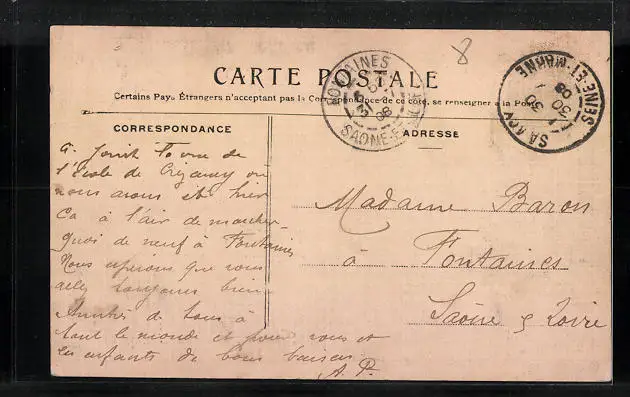 8
CARTE POSTALE
Certains Pays Étrangers n'acceptant pas la Correspondance de ce côté, se renseigner à la Poste
CORRESPONDANCE
ADRESSE
FONTAINES
31
08
SAONE-ET-LOIRE
SAACY
SEINE-ET-MARNE
30
08
vue de
l'école de Crézancy où
nous avons été hier
Ca à l'air de marcher
Quoi de neuf à Fontaines
Nous espérons que vous
allez toujours bien
Amitiés de tous à
tout le monde et pour vous et
les enfants de bons baisers
A. P.
Madame Baron
à Fontaines
Saône & Loire